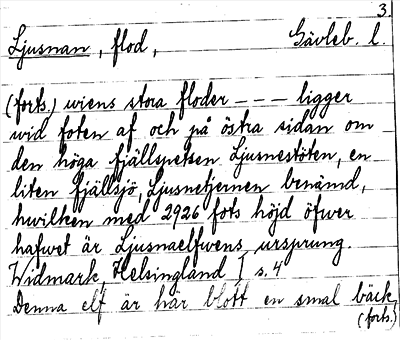 3.
Ljusnan, flod, Gävleb. l.
(forts.) wiens stora floder - - - ligger
wid foten af och på östra sidan om
den höga fjällspetsen Ljusnestöten, en
liten fjällsjö, Ljusnetjernen benämd,
hwilken med 2926 fots höjd öfwer
hafwet är Ljusnaelfwens ursprung.
Widmark, Helsingland I s. 4
Denna elf är här blott en smal bäck
(forts.)